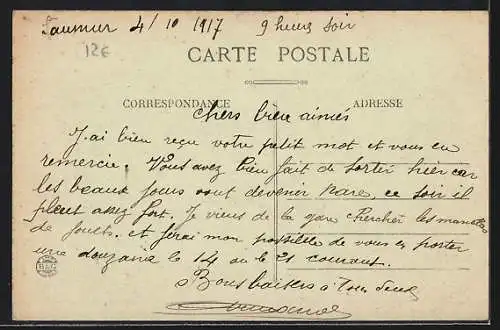 Saumur 4/10 1917 9 heures soir
12€
CARTE POSTALE
CORRESPONDANCE ADRESSE
Chers bien aimés
J'ai bien reçu votre petit mot et vous en
remercie. Vous avez bien fait de sortir hier car
les beaux jours vont devenir rare, ce soir il
pleut assez fort. Je viens de la gare chercher les
de et ferai mon possible de vous en porter
une douzaine le 14 ou le 21 courant.
Bons baisers à tous deux